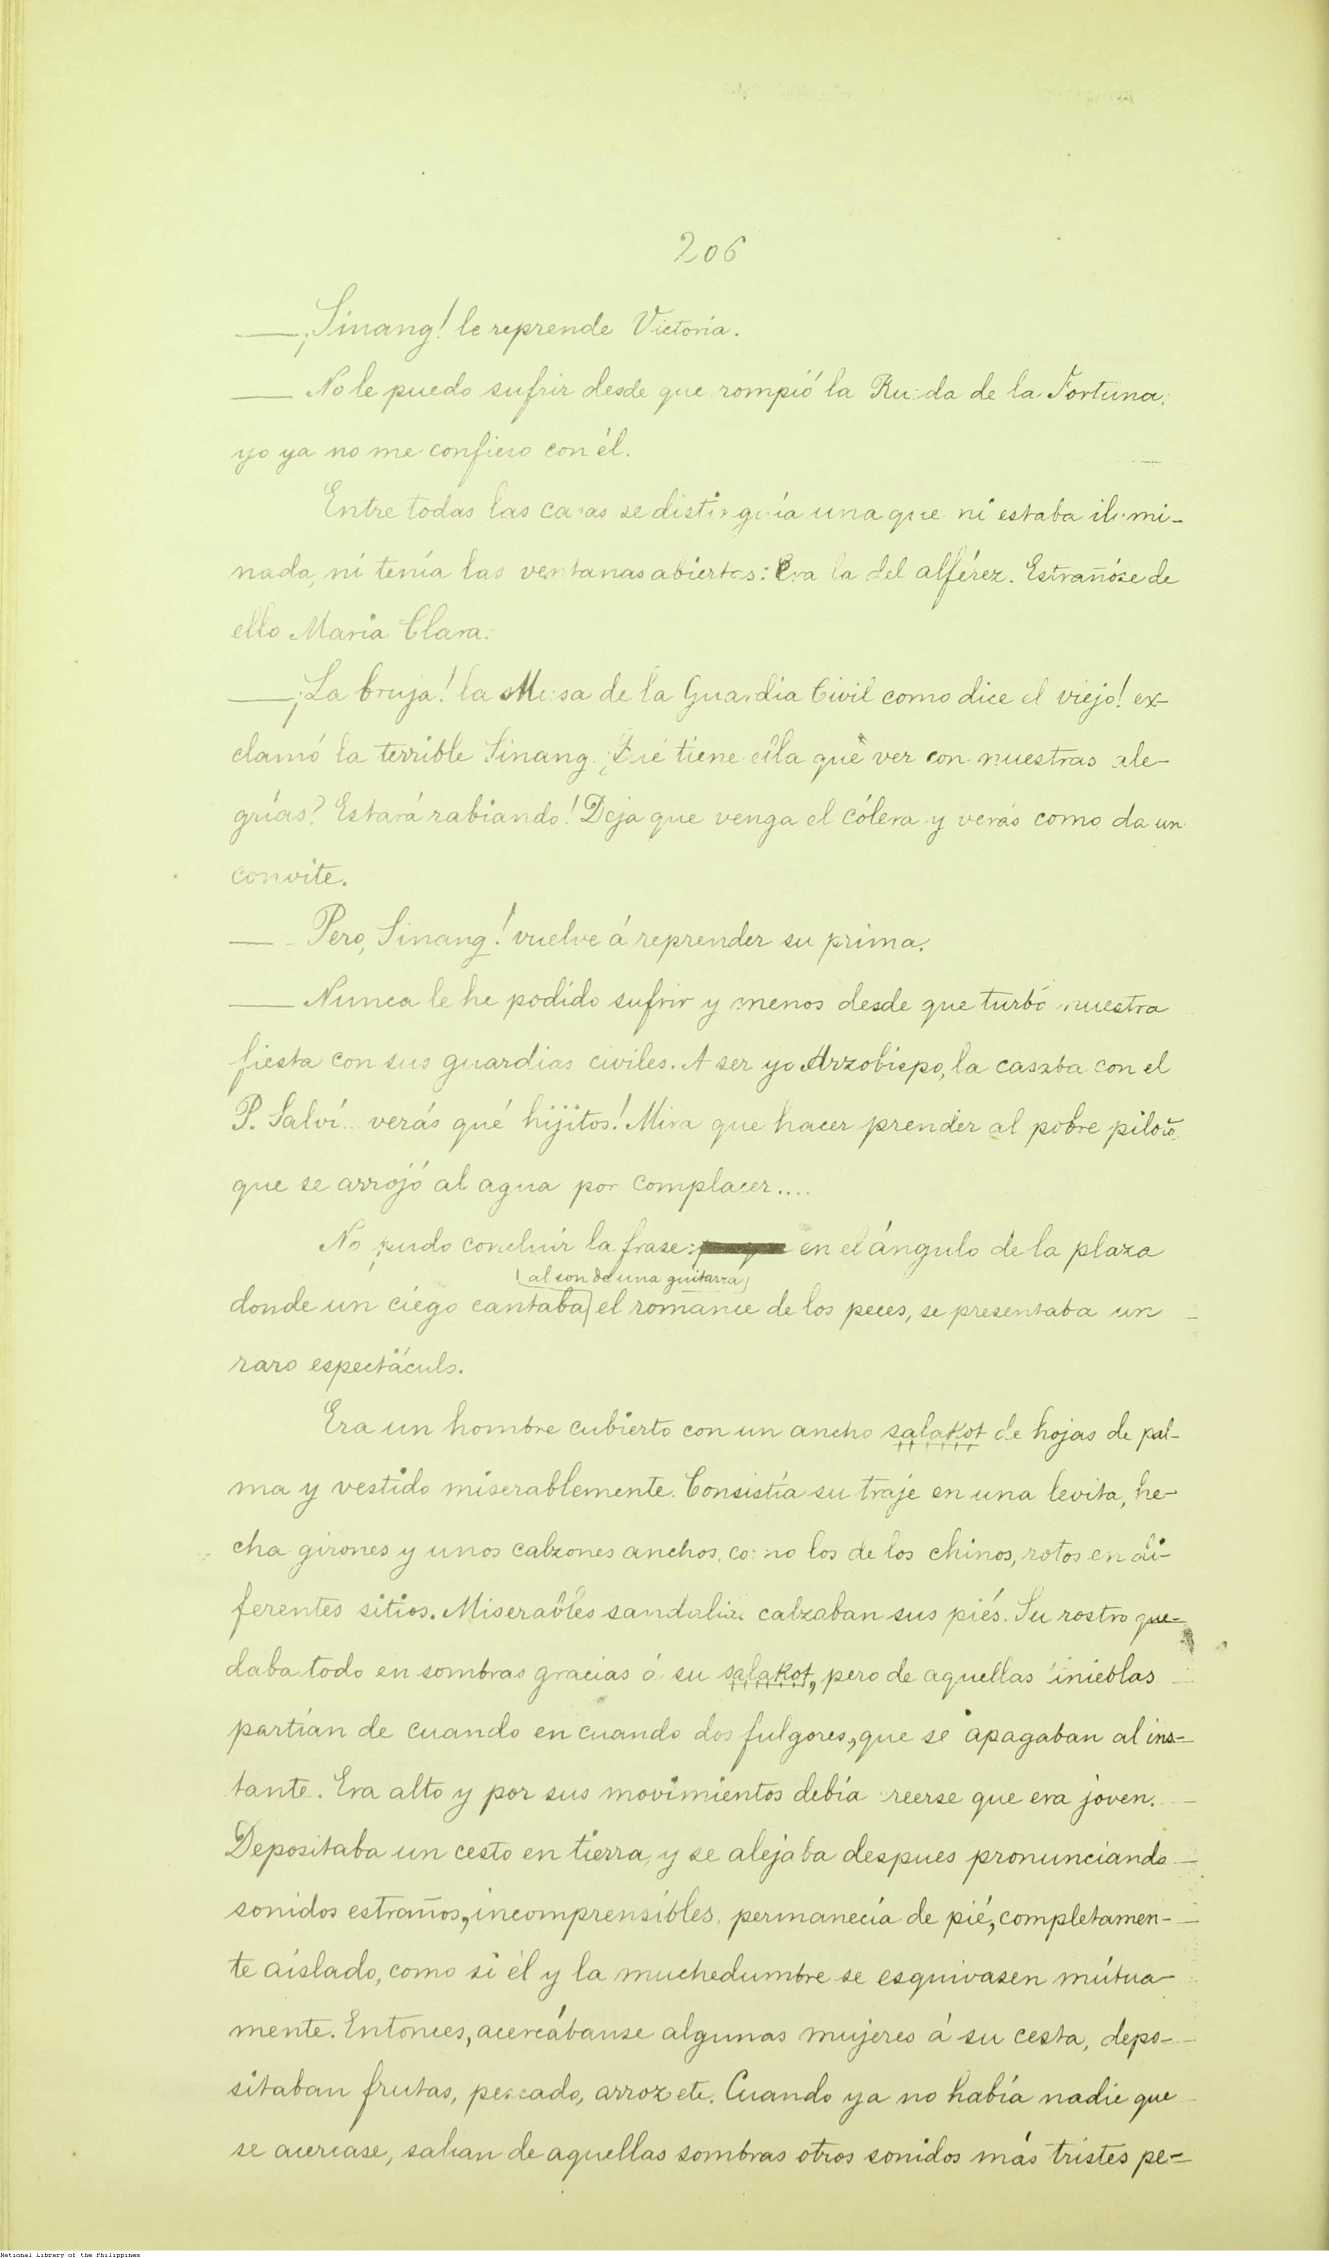 206
—¡Sinang! le reprende Victoria.
— No le puedo sufrir desde que rompió la Rueda de la Fortuna;
yo ya no me confieso con él.
Entre todas las casas se distinguía una que ni estaba ilumi-
nada, ni tenía las ventanas abiertas: Era la del alférez. Estrañóse de
ello María Clara.
—¡La bruja! la Musa de la Guardia Civil como dice el viejo! ex-
clamó la terrible Sinang. ¿Qué tiene ella què ver con nuestras ale-
grías? Estará rabiando! Deja que venga el cólera y verás como da un
convite.
— Pero, Sinang! vuelve á reprender su prima.
— Nunca le he podido sufrir y menos desde que turbó nuestra
fiesta con sus guardias civiles. A ser yo Arzobispo, la casaba con el
P. Salví... verás qué hijitos! Mira que hacer prender al pobre piloto,
que se arrojó al agua por complacer....
No pudo concluir la frase: en el ángulo de la plaza
al son de una guitarra
donde un ciego cantaba el romance de los peces, se presentaba un
raro espectáculo.
Era un hombre cubierto con un ancho salakot de hojas de pal-
ma y vestido miserablemente. Consistía su traje en una levita, he-
cha girones y unos calzones anchos, como los de los chinos, rotos en di-
ferentes sitios. Miserables sandalias calzaban sus piés. Su rostro que-
daba todo en sombras gracias á su salakot, pero de aquellas tinieblas
partían de cuando en cuando dos fulgores, que se apagaban al ins-
tante. Era alto y por sus movimientos debía creerse que era joven.
Depositaba un cesto en tierra, y se alejaba despues pronunciando
sonidos estraños, incomprensibles, permanecía de pié, completamen-
te aislado, como si él y la muchedumbre se esquivasen mútua-
mente. Entonces, acercábanse algunas mujeres á su cesta, depo-
sitaban frutas, pescado, arroz etc. Cuando ya no había nadie que
se acercase, salían de aquellas sombras otros sonidos más tristes pe-
National Library of the Philippines